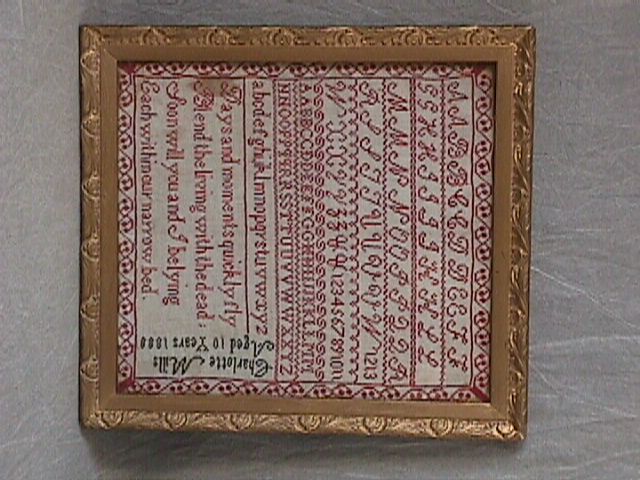 A A B B C C D D E E F F
G G H H I I J J K K L L
M M N N O O P P Q Q R
R S S T T U U V V W 1213
W X X Y Y Z Z & & 1234567891011
AABBCCDDEEFFGGHHIIJJKKLLMM
NNOOPPQQRRSSTTUUVVWWXXYYZ
abcdefghijklmnopqrstuvwxyz
Days and moments quickly fly
Blend the living with the dead;
Soon will you and I be lying
Each within our narrow bed.
Charlotte Mills
Aged 10 Years 1880